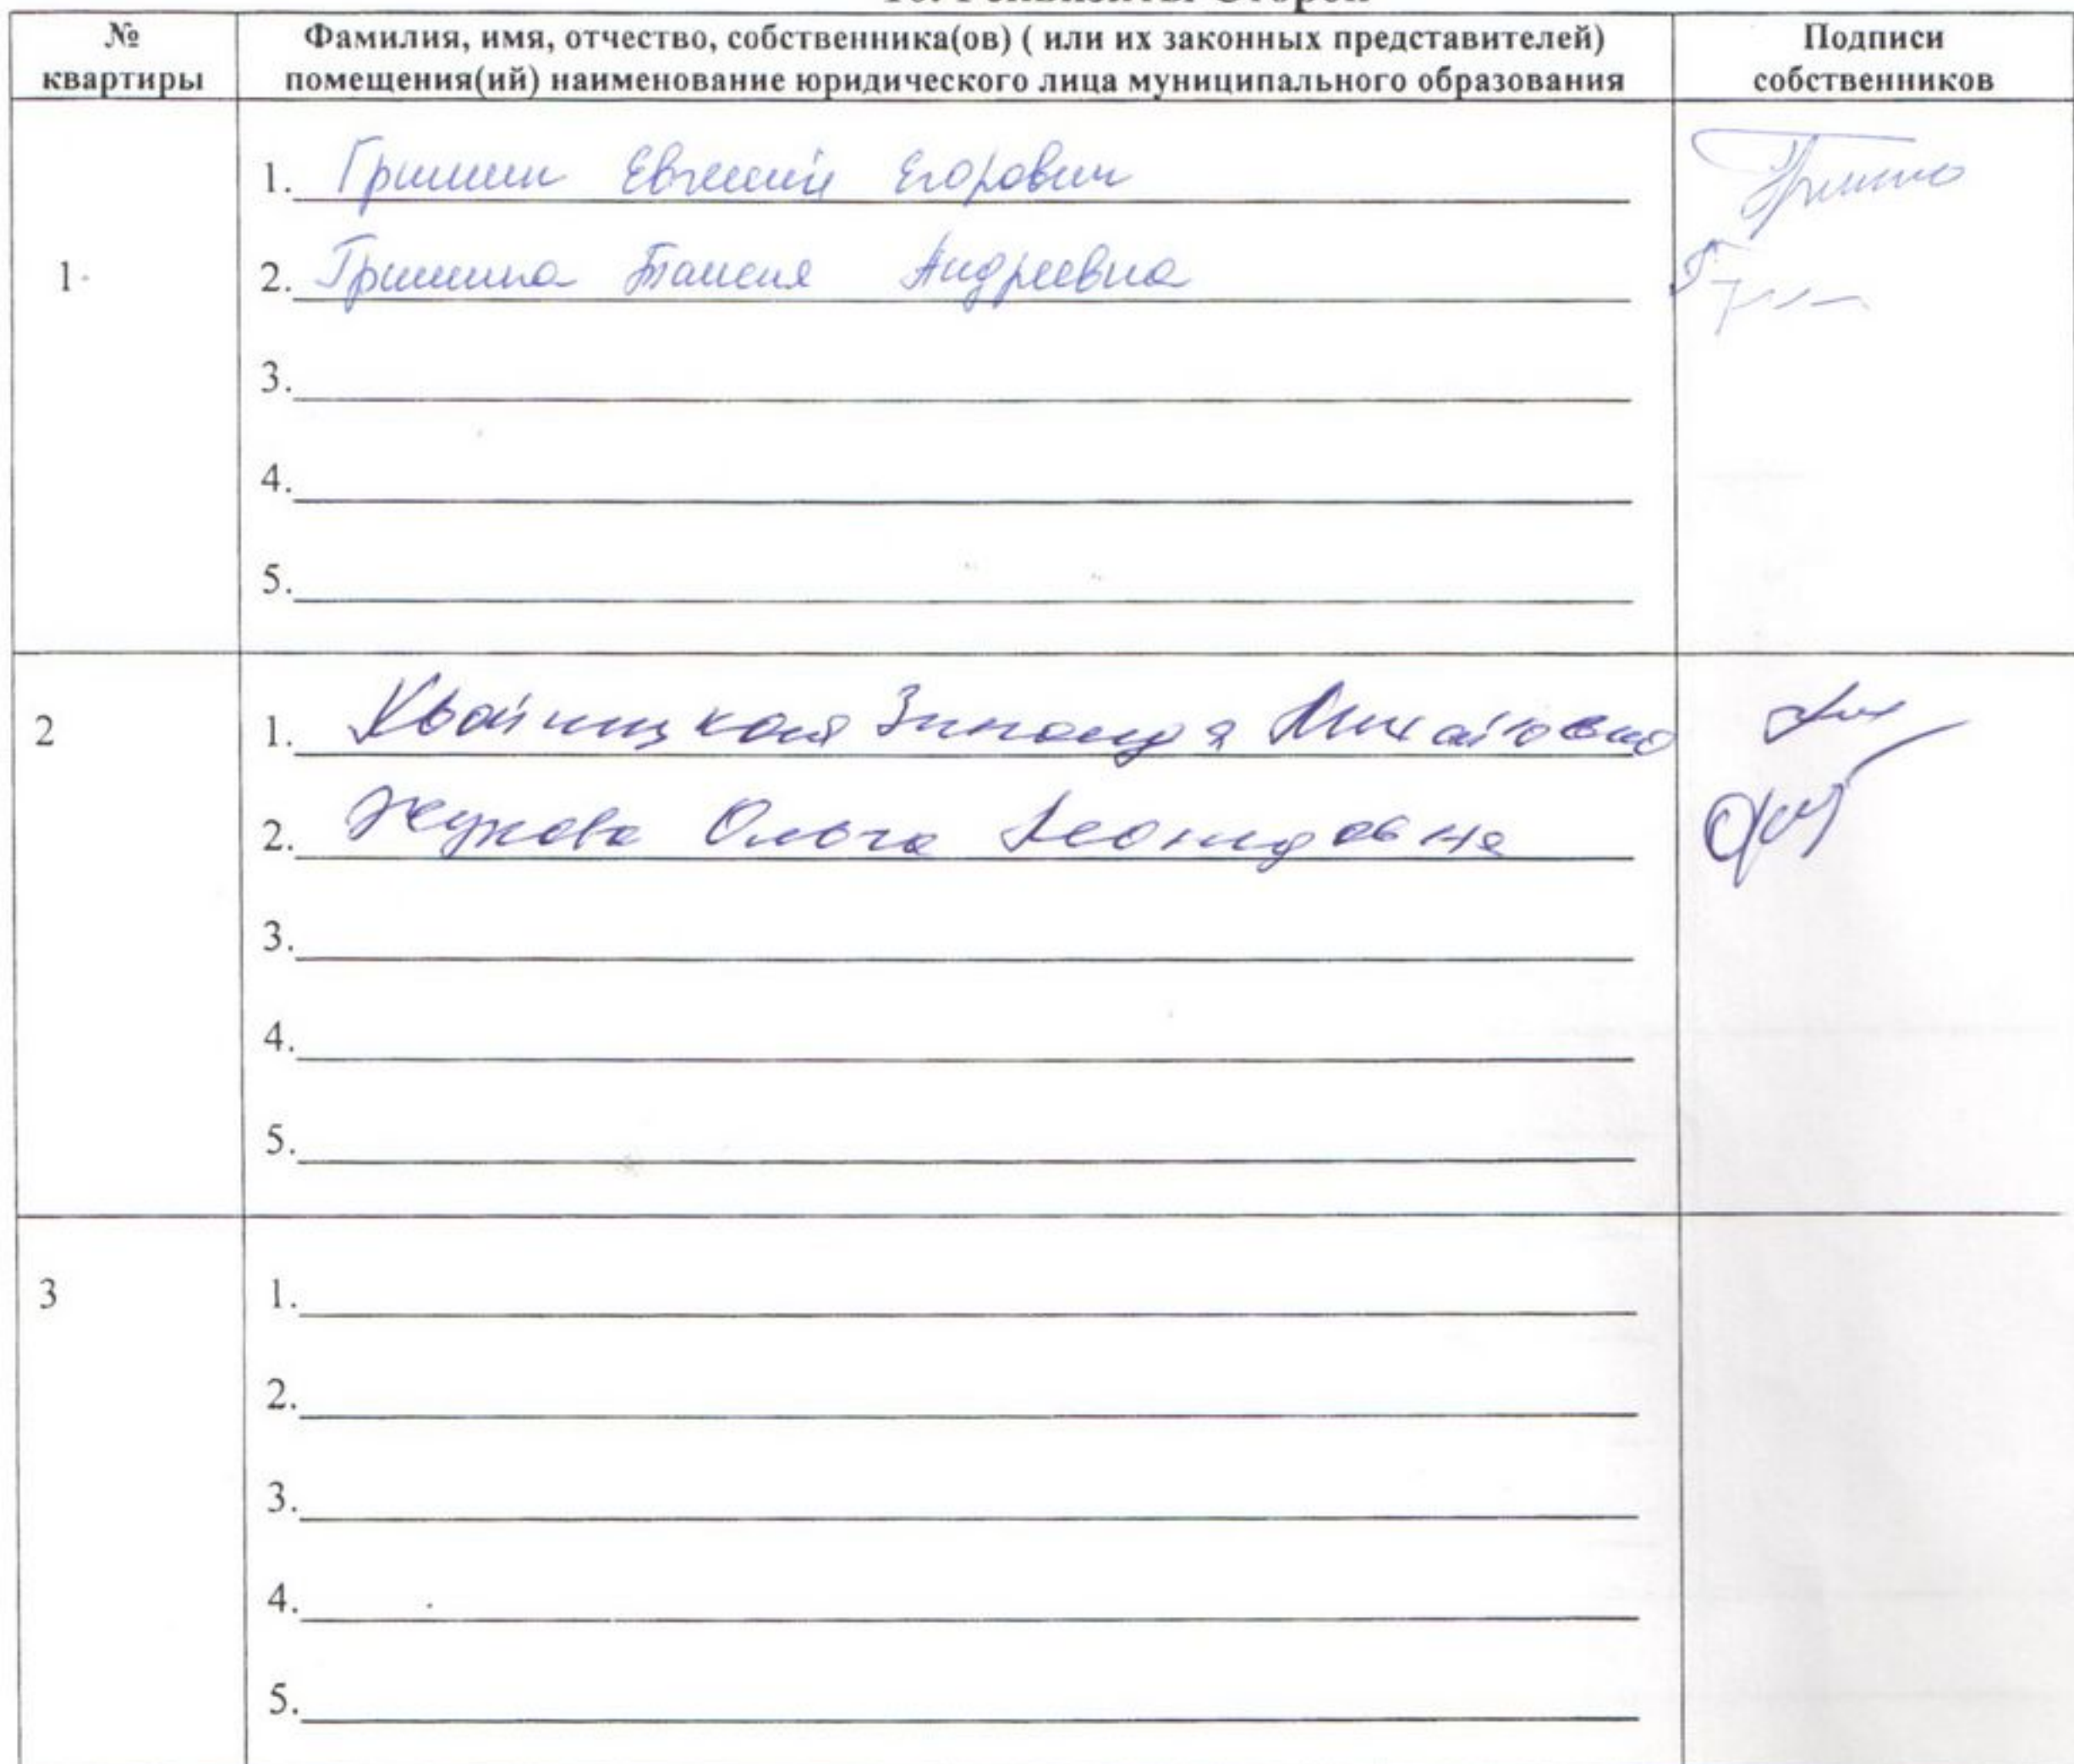 №
квартиры
Фамилия, имя, отчество, собственника(ов) ( или их законных представителей)
помещения(ий) наименование юридического лица муниципального образования
Подписи
собственников
1
1. Гришин Евгений Егорович
2. Гришина Таисия Андреевна
3.
4.
5.
2
1. Зинаида Михайловна
2. Ольга Леонидовна
3.
4.
5.
3
1.
2.
3.
4.
5.